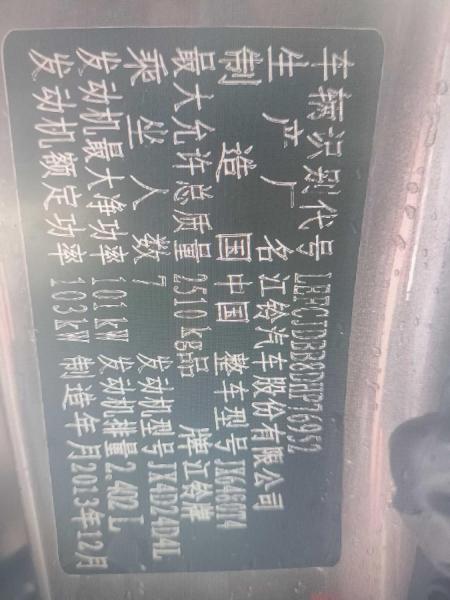 车辆识别代号 LEFCJDBB8DHP76952
生产厂名 江铃汽车股份有限公司
制造国 中国 整车型号
最大允许总质量 2510 kg 品牌 江铃牌
乘坐人数 7 发动机型号 JX4D24D4L
发动机最大净功率 101kW 发动机排量 2.402L
发动机额定功率 103kW 制造年月 2013年12月